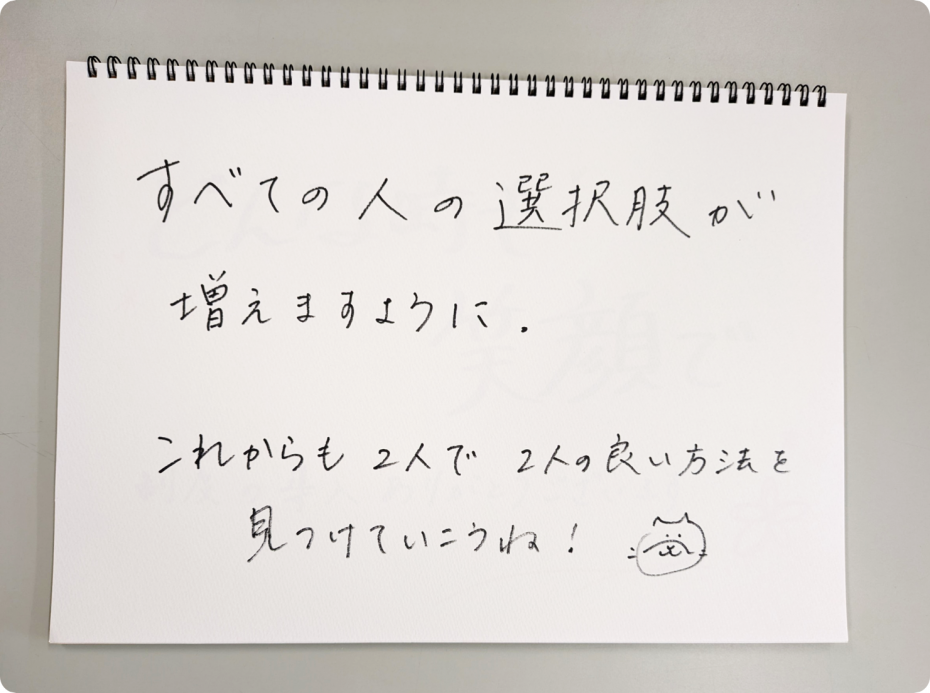 すべての人の選択肢が
増えますように.
これからも 2人で 2人の良い方法を
見つけていこうね！